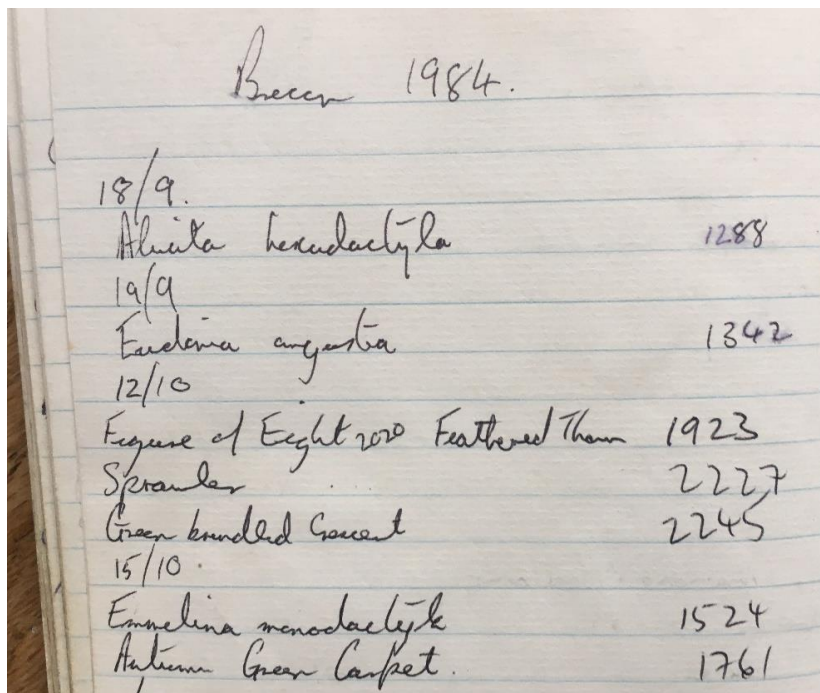 Brecon 1984.
18/9.
Alucita hexadactyla 1288
19/9
Eudonia angustea 1342
12/10
Figure of Eight 2020 Feathered Thorn 1923
Sprawler 2227
Green brindled Crescent 2245
15/10
Emmelina monodactyla 1524
Autumn Green Carpet. 1761